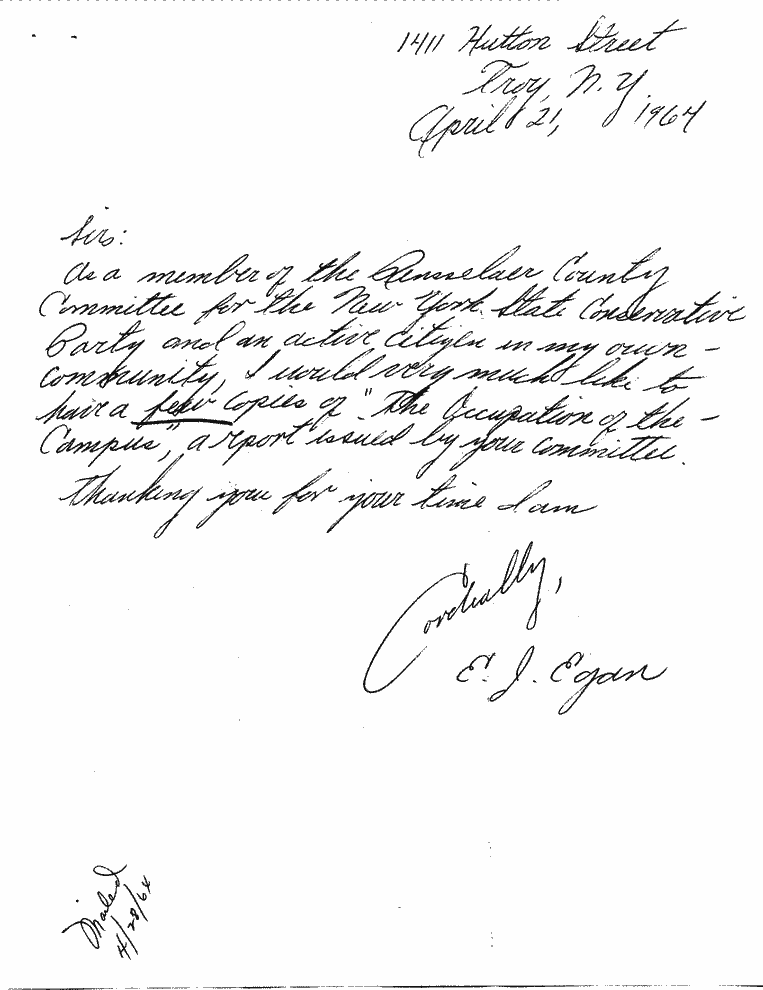 1411 Hutton Street
Troy, N.Y.
April 21, 1964
Sirs:
As a member of the Rensselaer County
Committee for the New York State Conservative
Party and an active citizen in my own -
community, I would very much like to
have a few copies of "The Occupation of the -
Campus," a report issued by your committee.
Thanking you for your time I am
Cordially,
E. J. Egan
Mailed
4/28/64